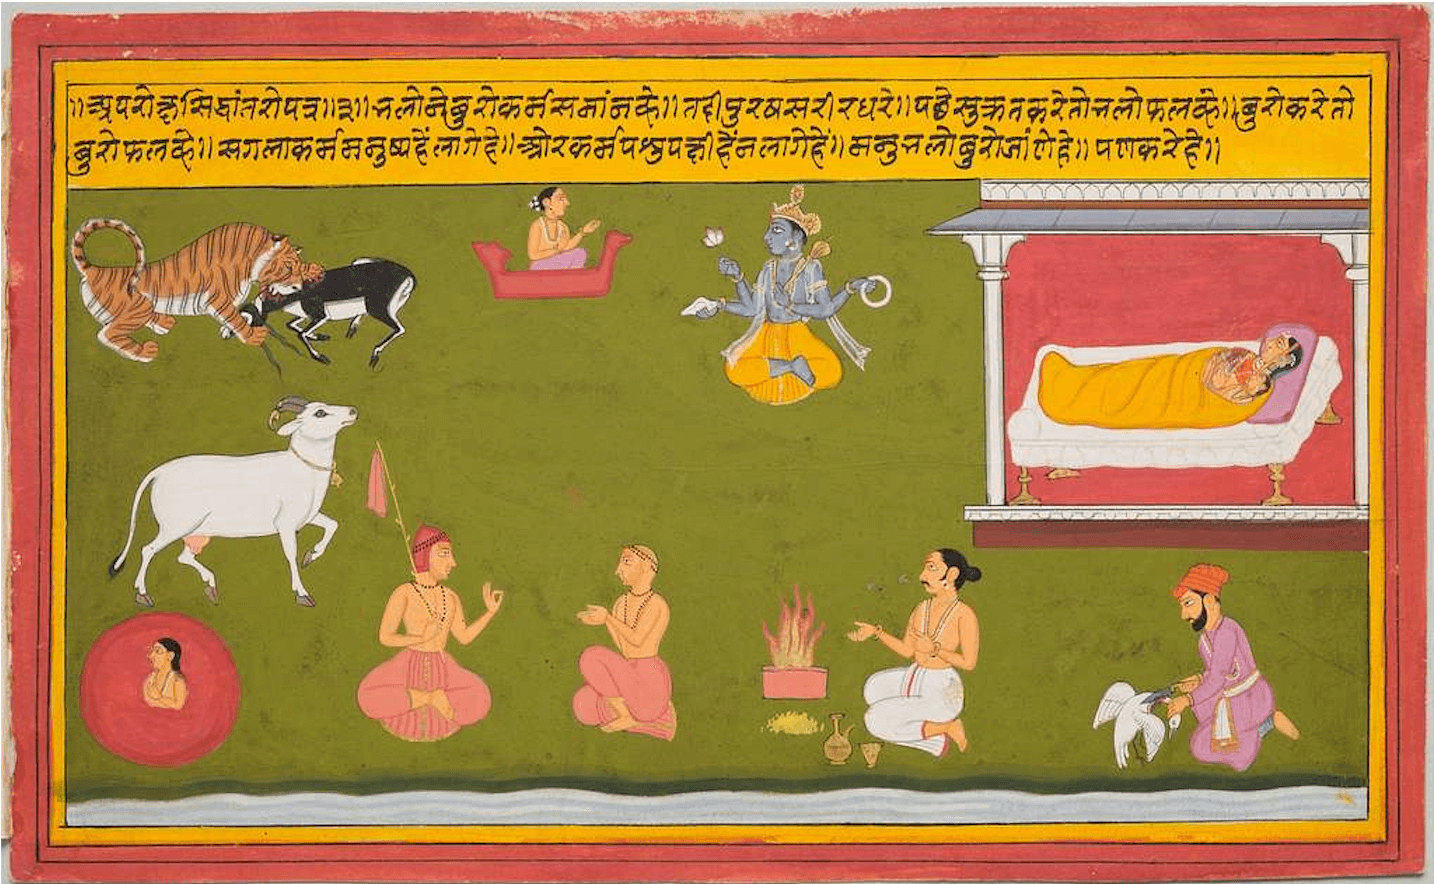 ॥अपरोक्षसिद्धांतरोपत्र॥३॥भलोनेबुरोकर्मसमांनछे॥तदीपुरषसरीरधरे॥पछेसुक्रतकरेतोभलोफलछे॥बुरोकरेतो
बुरोफलछे॥सगलाकर्ममनुष्यहेंलागेहे॥ओरकर्मपशुपक्षीहेंनलागेहें॥मनुभलोबुरोजांणेहे॥पणकरेहे॥